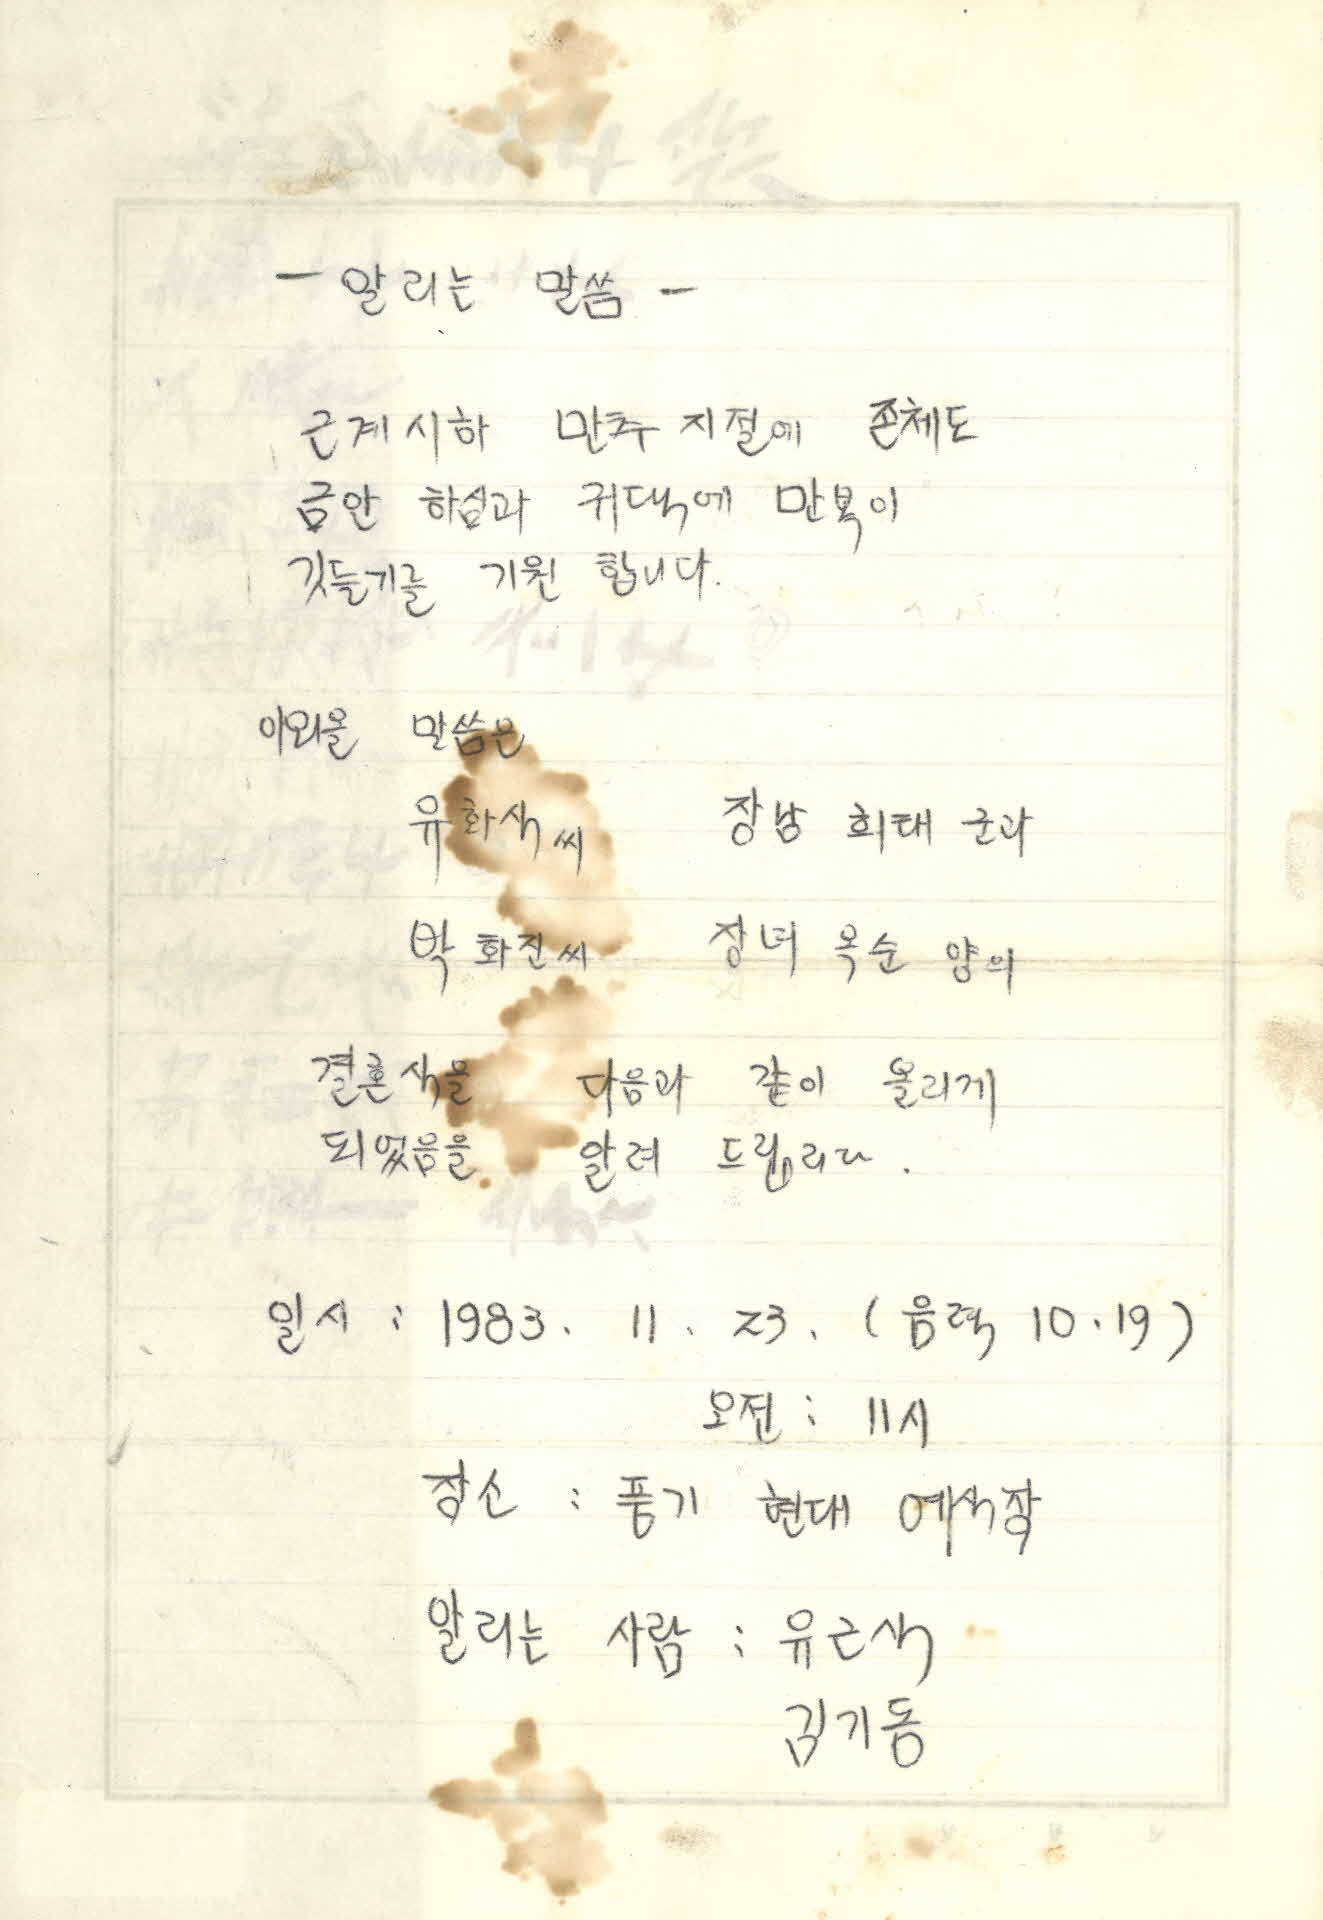 - 알리는 말씀 -
근계시하 만추지절에 존체도
금안 하심과 귀댁에 만복이
깃들기를 기원 합니다.
아뢰올 말씀은
유화식씨 장남 희태 군과
박화진씨 장녀 옥순 양의
결혼식을 다음과 같이 올리게
되었음을 알려 드립니다.
일시 : 1983. 11. 23. (음력 10.19)
오전 : 11시
장소 : 풍기 현대 예식장
알리는 사람 : 유근식
김기동